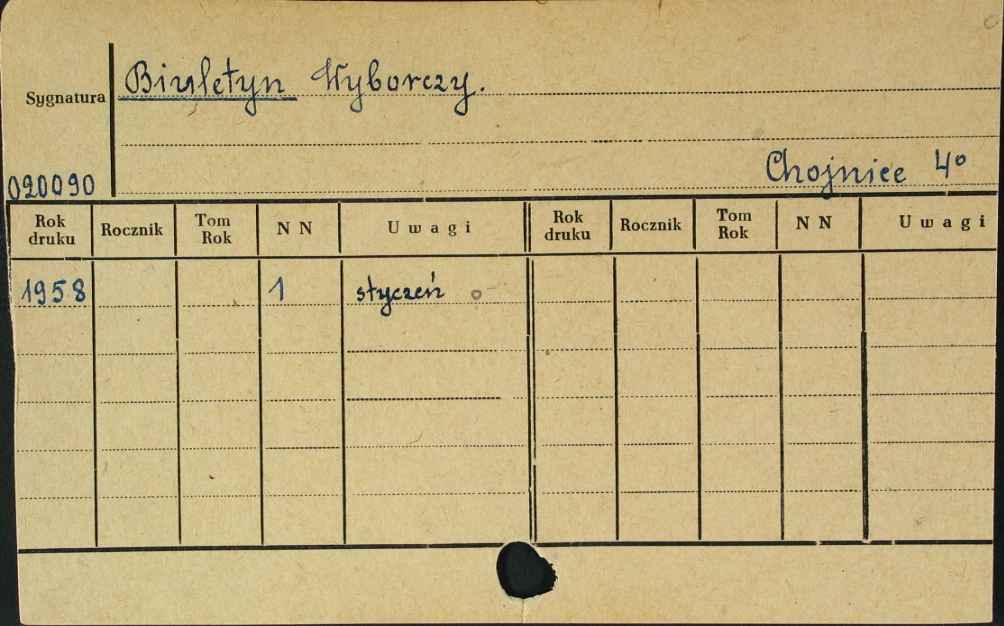 Biuletyn Wyborczy.
Sygnatura
Chojnice 4°
020090
Rok druku Rocznik Tom Rok N N Uwagi Rok druku Rocznik Tom Rok N N Uwagi
1958 1 styczeń